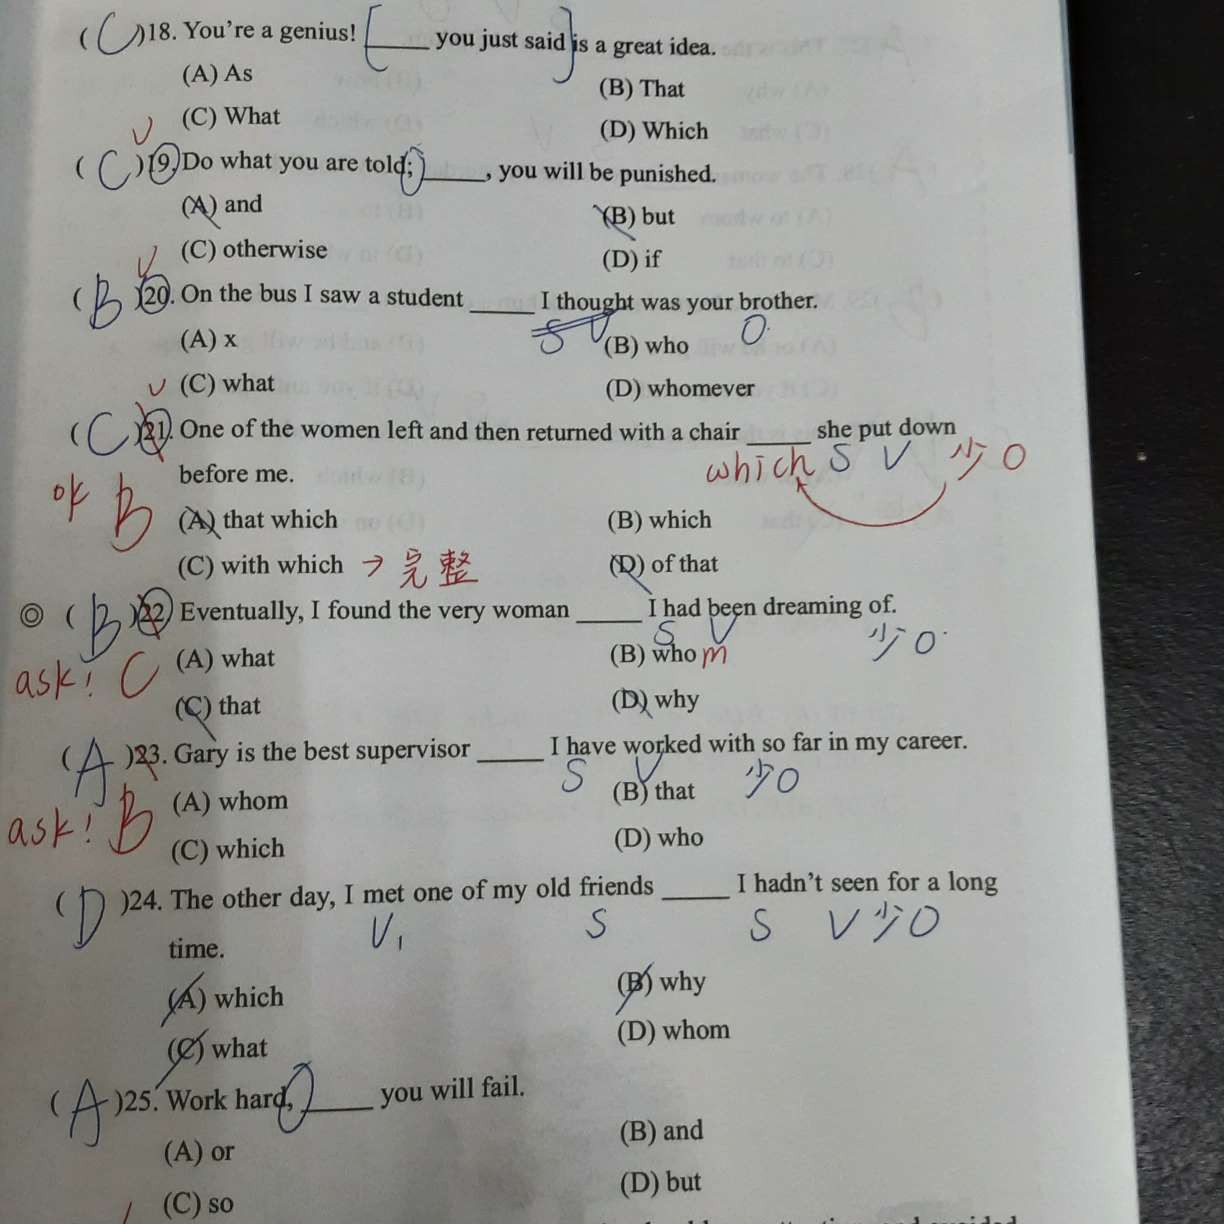 ( C )18. You're a genius! [____ you just said] is a great idea.
(A) As
(B) That
(C) What
(D) Which
( C )19. Do what you are told; ____, you will be punished.
(A) and
(B) but
(C) otherwise
(D) if
( B )20. On the bus I saw a student ____ I thought was your brother.
S V O
(A) x
(B) who
(C) what
(D) whomever
( C )21. One of the women left and then returned with a chair ____ she put down
which S V 少O
before me.
ok B
(A) that which
(B) which
(C) with which → 完整
(D) of that
◎ ( B )22. Eventually, I found the very woman ____ I had been dreaming of.
S V 少O
ask! C
(A) what
(B) whom
(C) that
(D) why
( A )23. Gary is the best supervisor ____ I have worked with so far in my career.
S V 少O
ask! B
(A) whom
(B) that
(C) which
(D) who
( D )24. The other day, I met one of my old friends ____ I hadn't seen for a long
V1 S S V 少O
time.
(A) which
(B) why
(C) what
(D) whom
( A )25. Work hard, ____ you will fail.
(A) or
(B) and
(C) so
(D) but